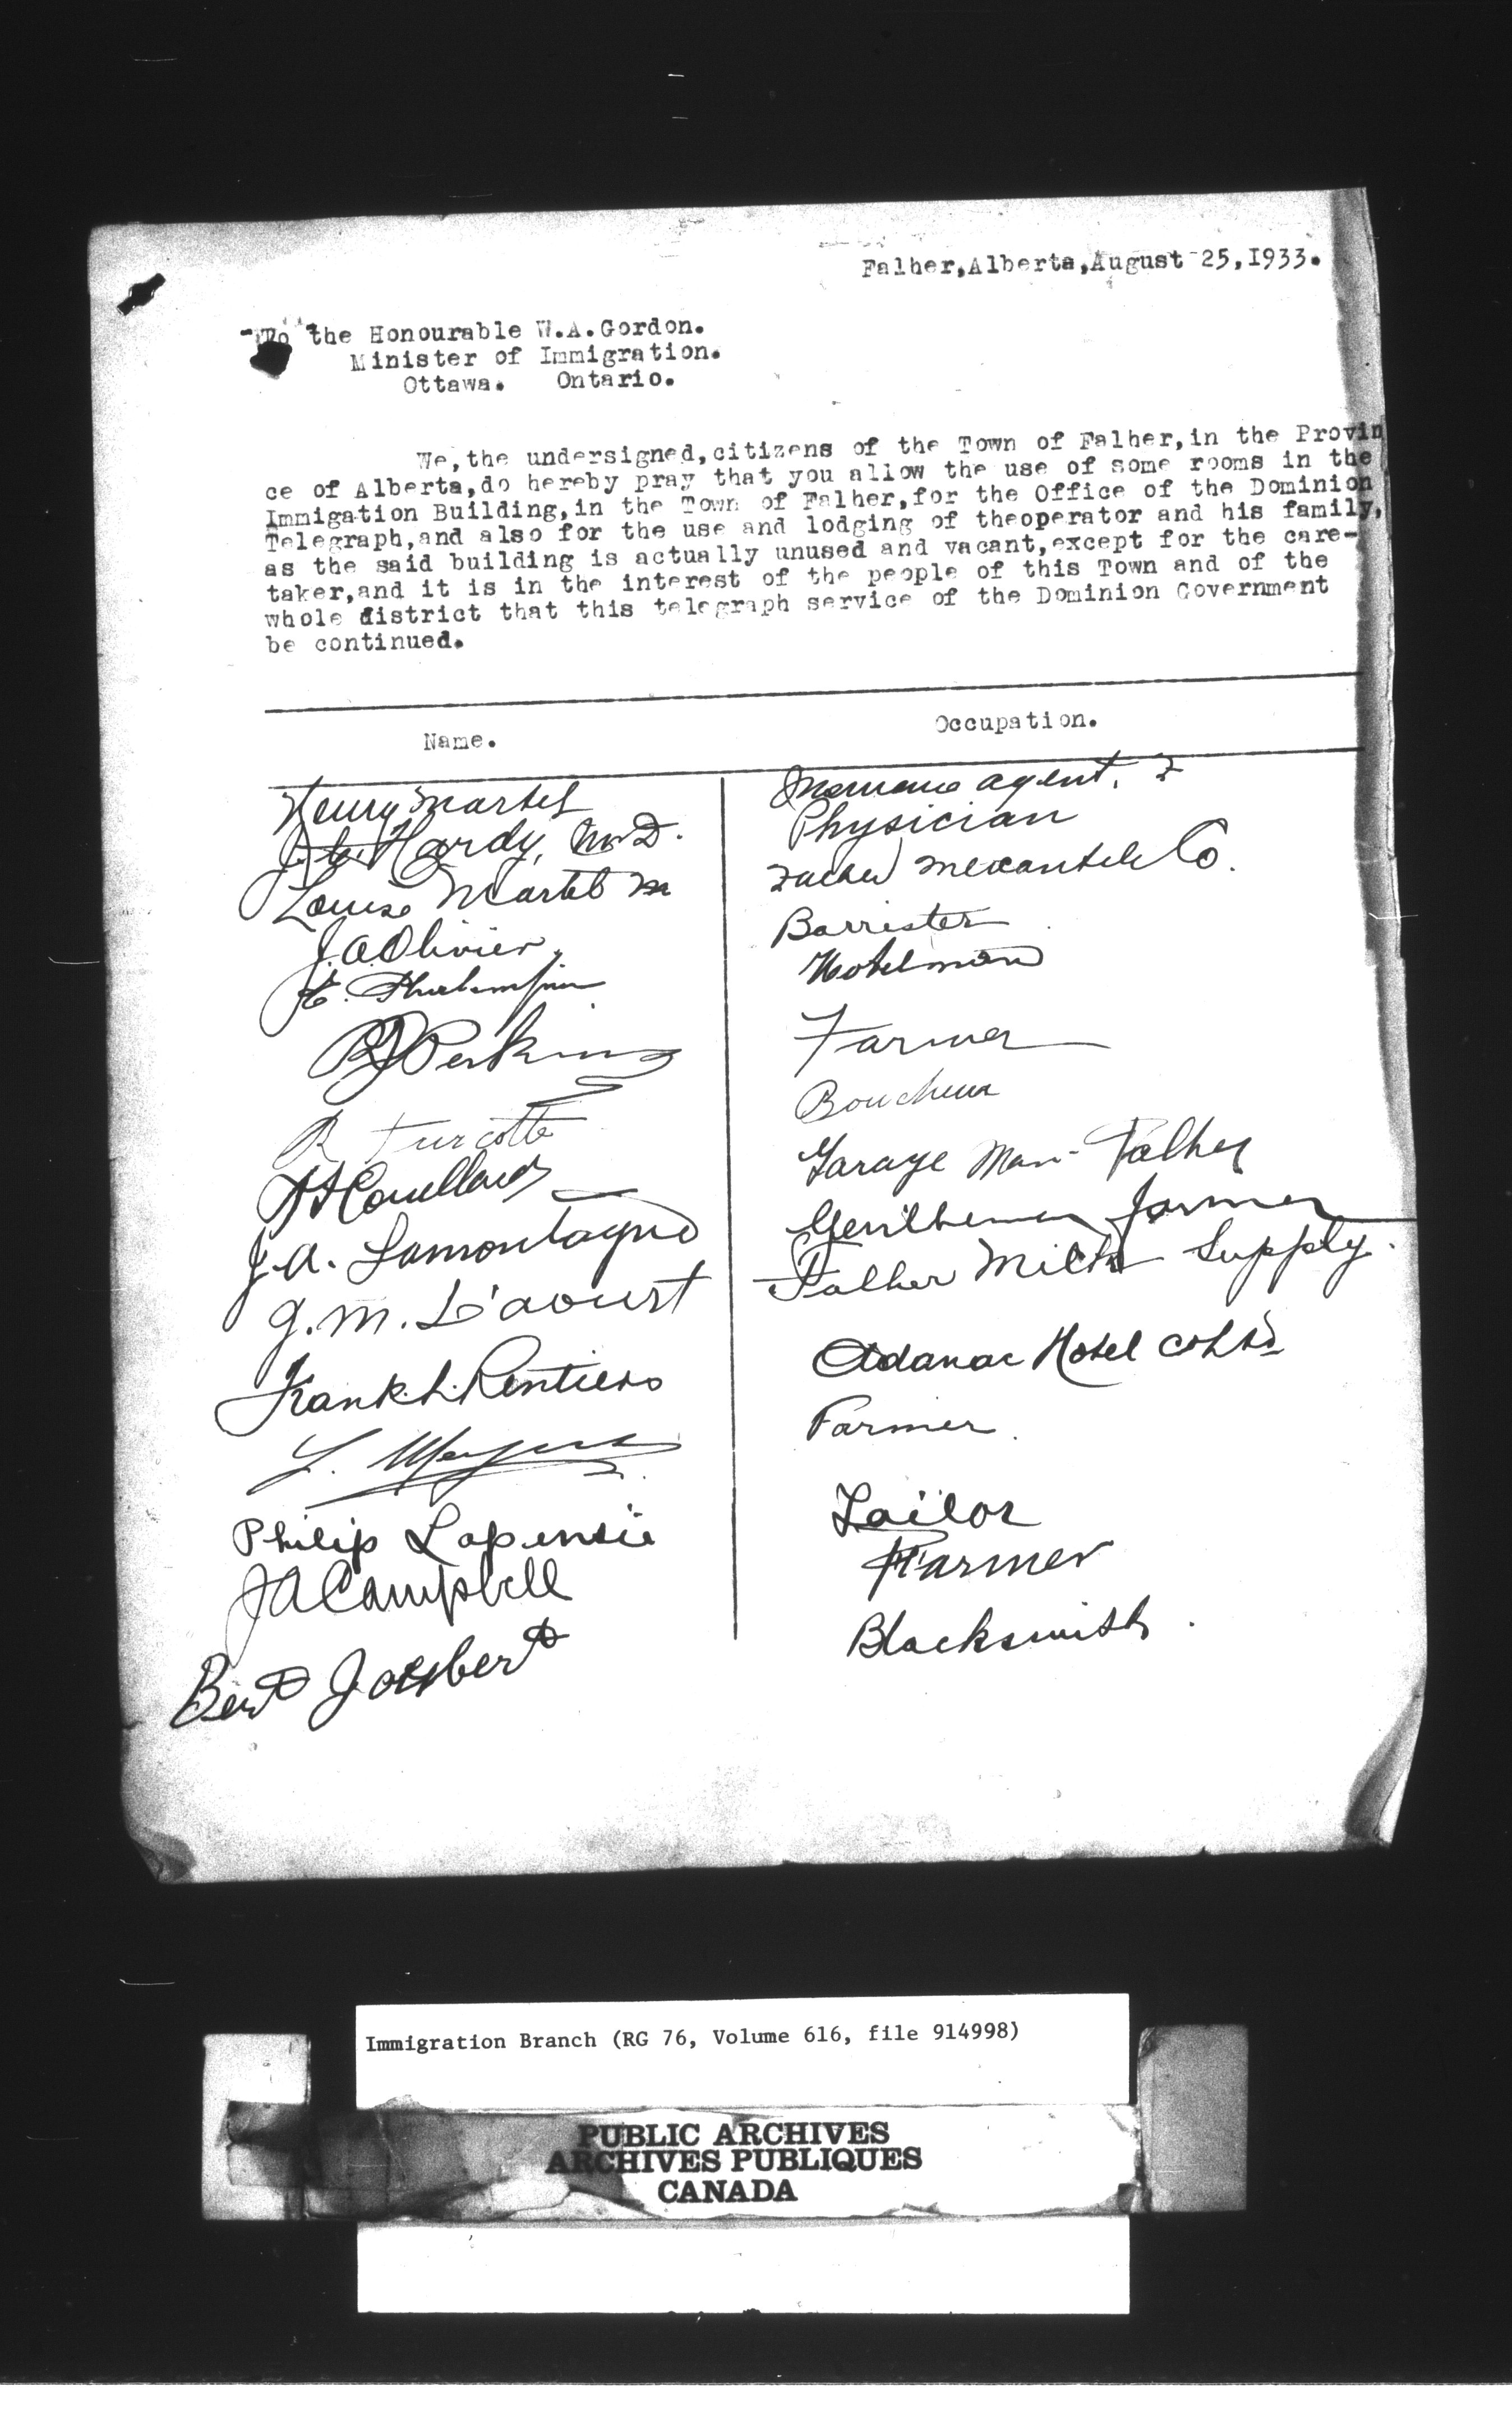 Falher,Alberta,August 25,1933.
To the Honourable W.A.Gordon.
Minister of Immigration.
Ottawa. Ontario.
We,the undersigned,citizens of the Town of Falher,in the Provin
ce of Alberta,do hereby pray that you allow the use of some rooms in the
Immigation Building,in the Town of Falher,for the Office of the Dominion
Telegraph,and also for the use and lodging of theoperator and his family,
as the said building is actually unused and vacant,except for the care-
taker,and it is in the interest of the people of this Town and of the
whole district that this telegraph service of the Dominion Government
be continued.
Name. Occupation.
Henry Martel agent.
Hardy, M.D. Physician
Louis Martel Mercantile Co.
J.A. Olivier Barrister
Hotelman
Perkins Farmer
R Turcotte
Garage Man - Falher
J.A. Lamontagne Gentleman farmer
J.M. D'aoust Falher Milk Supply.
Frank L. Rentiers Adanac Hotel Co Ltd
L. Farmer.
Philip Lapensie Tailor
J A Campbell Farmer
Bert Joubert Blacksmith.
Immigration Branch (RG 76, Volume 616, file 914998)
PUBLIC ARCHIVES
ARCHIVES PUBLIQUES
CANADA